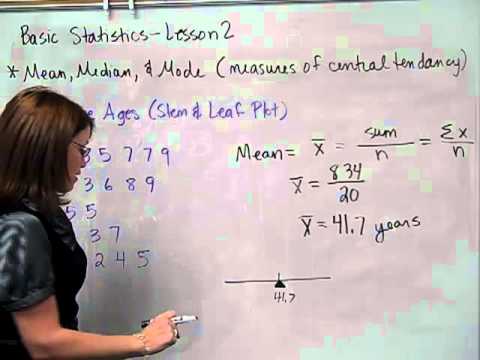 Basic Statistics-Lesson 2
* Mean, Median, & Mode (measures of central tendancy)
Ages (Stem & Leaf Plot)
3 5 7 7 9
3 6 8 9
5 5
3 7
2 4 5
Mean = x̄ = sum/n = Σx/n
x̄ = 834/20
x̄ = 41.7 years
41.7